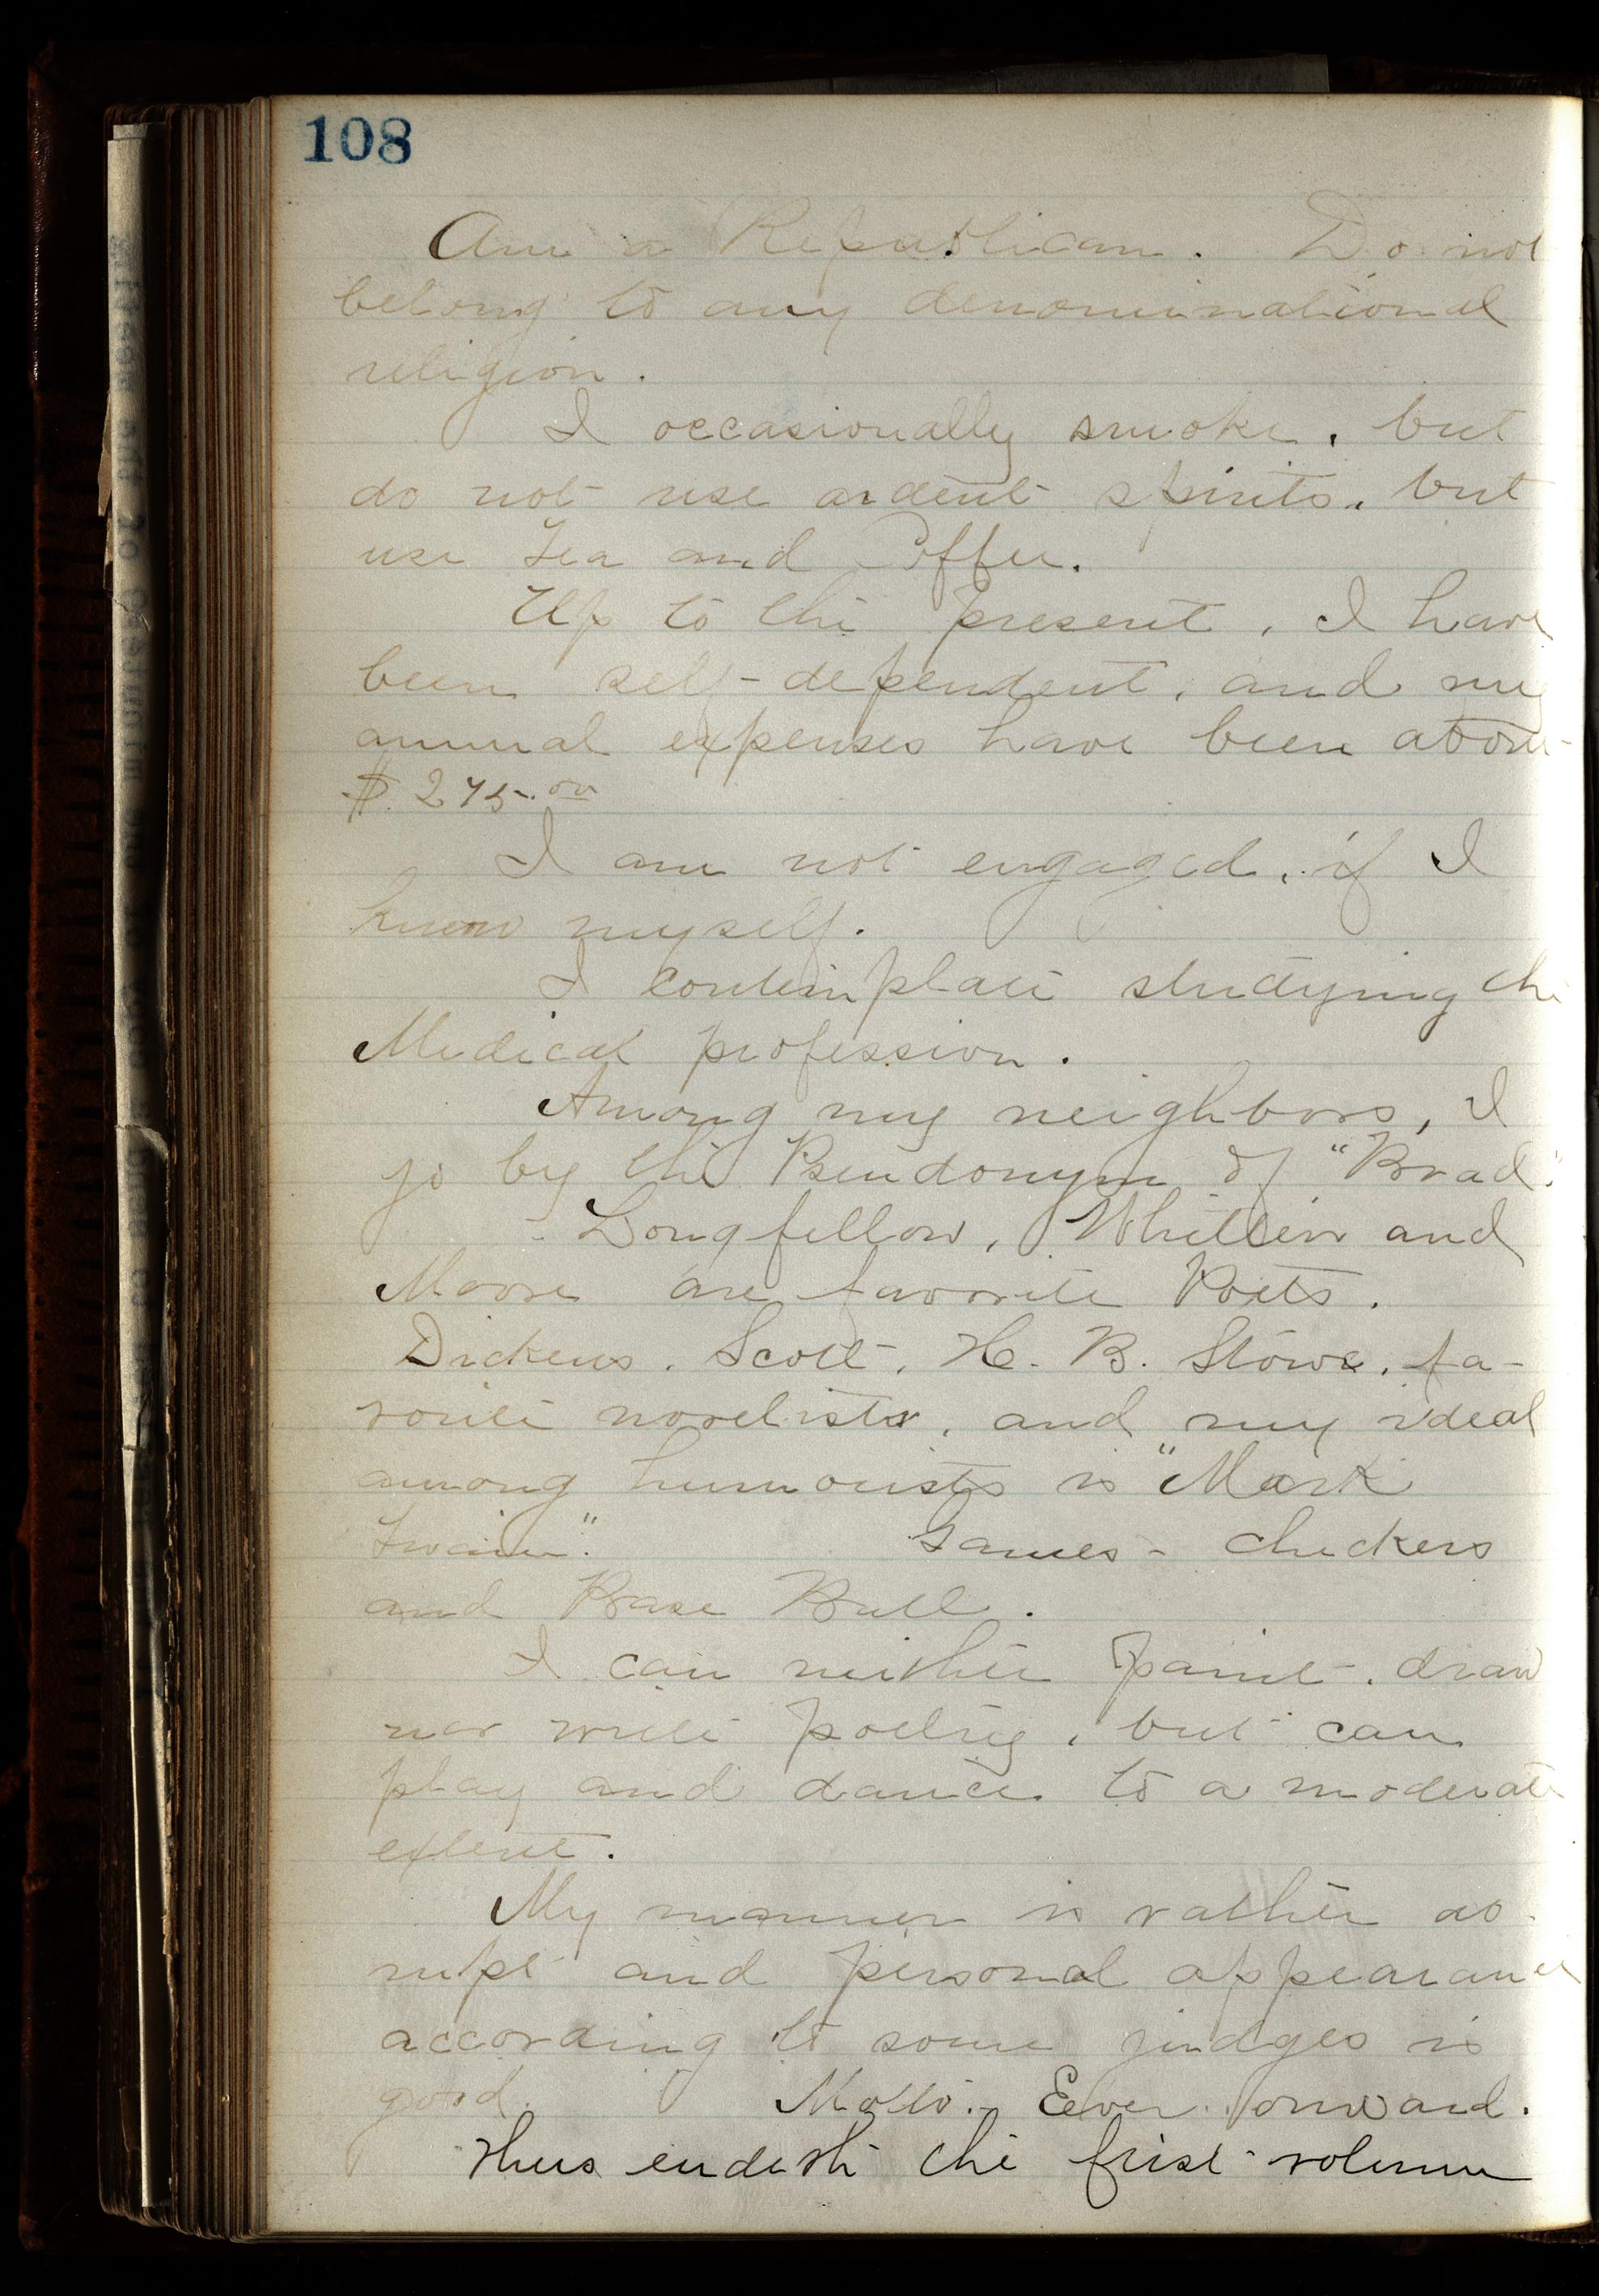 108
Am a Republican. Do not
belong to any denominational
religion.
I occasionally smoke, but
do not use ardent spirits, but
use Tea and Coffee.
Up to the present, I have
been self-dependent, and my
annual expenses have been about
$275.00
I am not engaged, if I
know myself.
I contemplate studying the
Medical profession.
Among my neighbors, I
go by the Pseudonym of "Brad."
Longfellow, Whittier and
Moore are favorite Poets.
Dickens, Scott, H. B. Stowe, fa-
vorite novelists, and my ideal
among humourists is "Mark
Twain." Games - Checkers
and Base Ball.
I can neither paint, draw
nor write poetry, but can
play and dance to a moderate
extent.
My manner is rather ab-
rupt and personal appearance
according to some judges is
good. Motto:- Ever onward.
Thus endeth the first volume